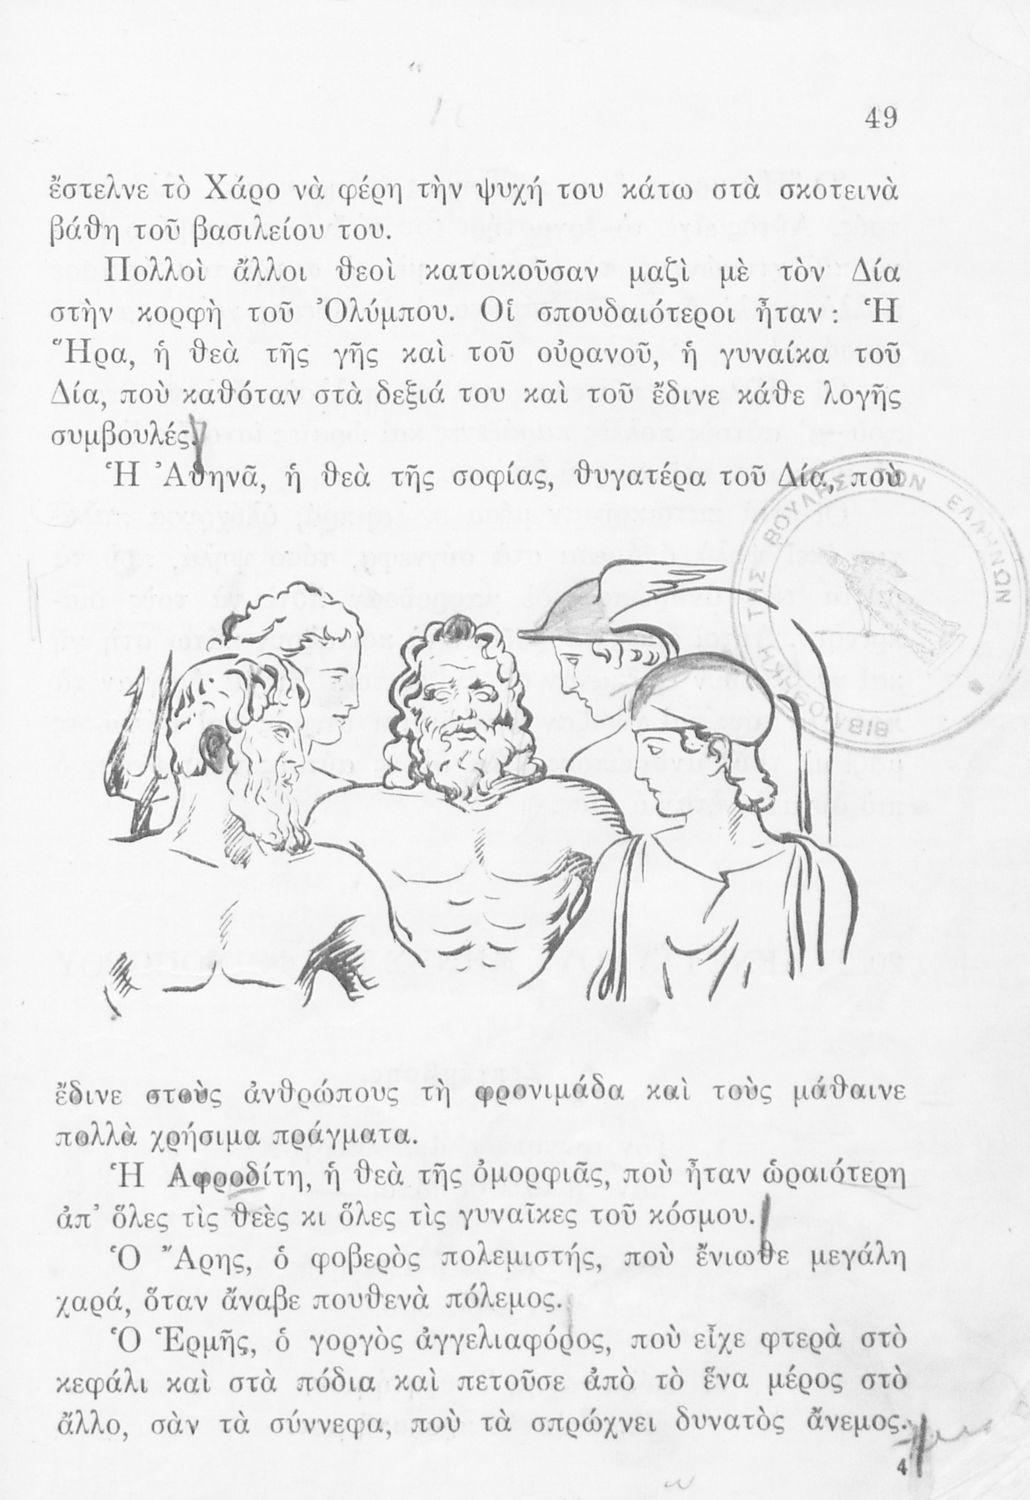 49
ἔστελνε τὸ Χάρο νὰ φέρη τὴν ψυχή του κάτω στὰ σκοτεινὰ
βάθη τοῦ βασιλείου του.
Πολλοὶ ἄλλοι θεοὶ κατοικοῦσαν μαζὶ μὲ τὸν Δία
στὴν κορφὴ τοῦ Ὀλύμπου. Οἱ σπουδαιότεροι ἦταν : Ἡ
Ἥρα, ἡ θεὰ τῆς γῆς καὶ τοῦ οὐρανοῦ, ἡ γυναίκα τοῦ
Δία, ποὺ καθόταν στὰ δεξιά του καὶ τοῦ ἔδινε κάθε λογῆς
συμβουλές.
Ἡ Ἀθηνᾶ, ἡ θεὰ τῆς σοφίας, θυγατέρα τοῦ Δία, ποὺ
ΒΙΒΛΙΟΘΗΚΗ ΤΗΣ ΒΟΥΛΗΣ ΤΩΝ ΕΛΛΗΝΩΝ
ἔδινε στοὺς ἀνθρώπους τὴ φρονιμάδα καὶ τοὺς μάθαινε
πολλὰ χρήσιμα πράγματα.
Ἡ Αφροδίτη, ἡ θεὰ τῆς ὀμορφιᾶς, ποὺ ἦταν ὡραιότερη
ἀπ' ὅλες τὶς θεὲς κι ὅλες τὶς γυναῖκες τοῦ κόσμου.
Ὁ Ἄρης, ὁ φοβερὸς πολεμιστής, ποὺ ἔνιωθε μεγάλη
χαρά, ὅταν ἄναβε πουθενὰ πόλεμος.
Ὁ Ἑρμῆς, ὁ γοργὸς ἀγγελιαφόρος, ποὺ εἶχε φτερὰ στὸ
κεφάλι καὶ στὰ πόδια καὶ πετοῦσε ἀπὸ τὸ ἕνα μέρος στὸ
ἄλλο, σὰν τὰ σύννεφα, ποὺ τὰ σπρώχνει δυνατὸς ἄνεμος.
4